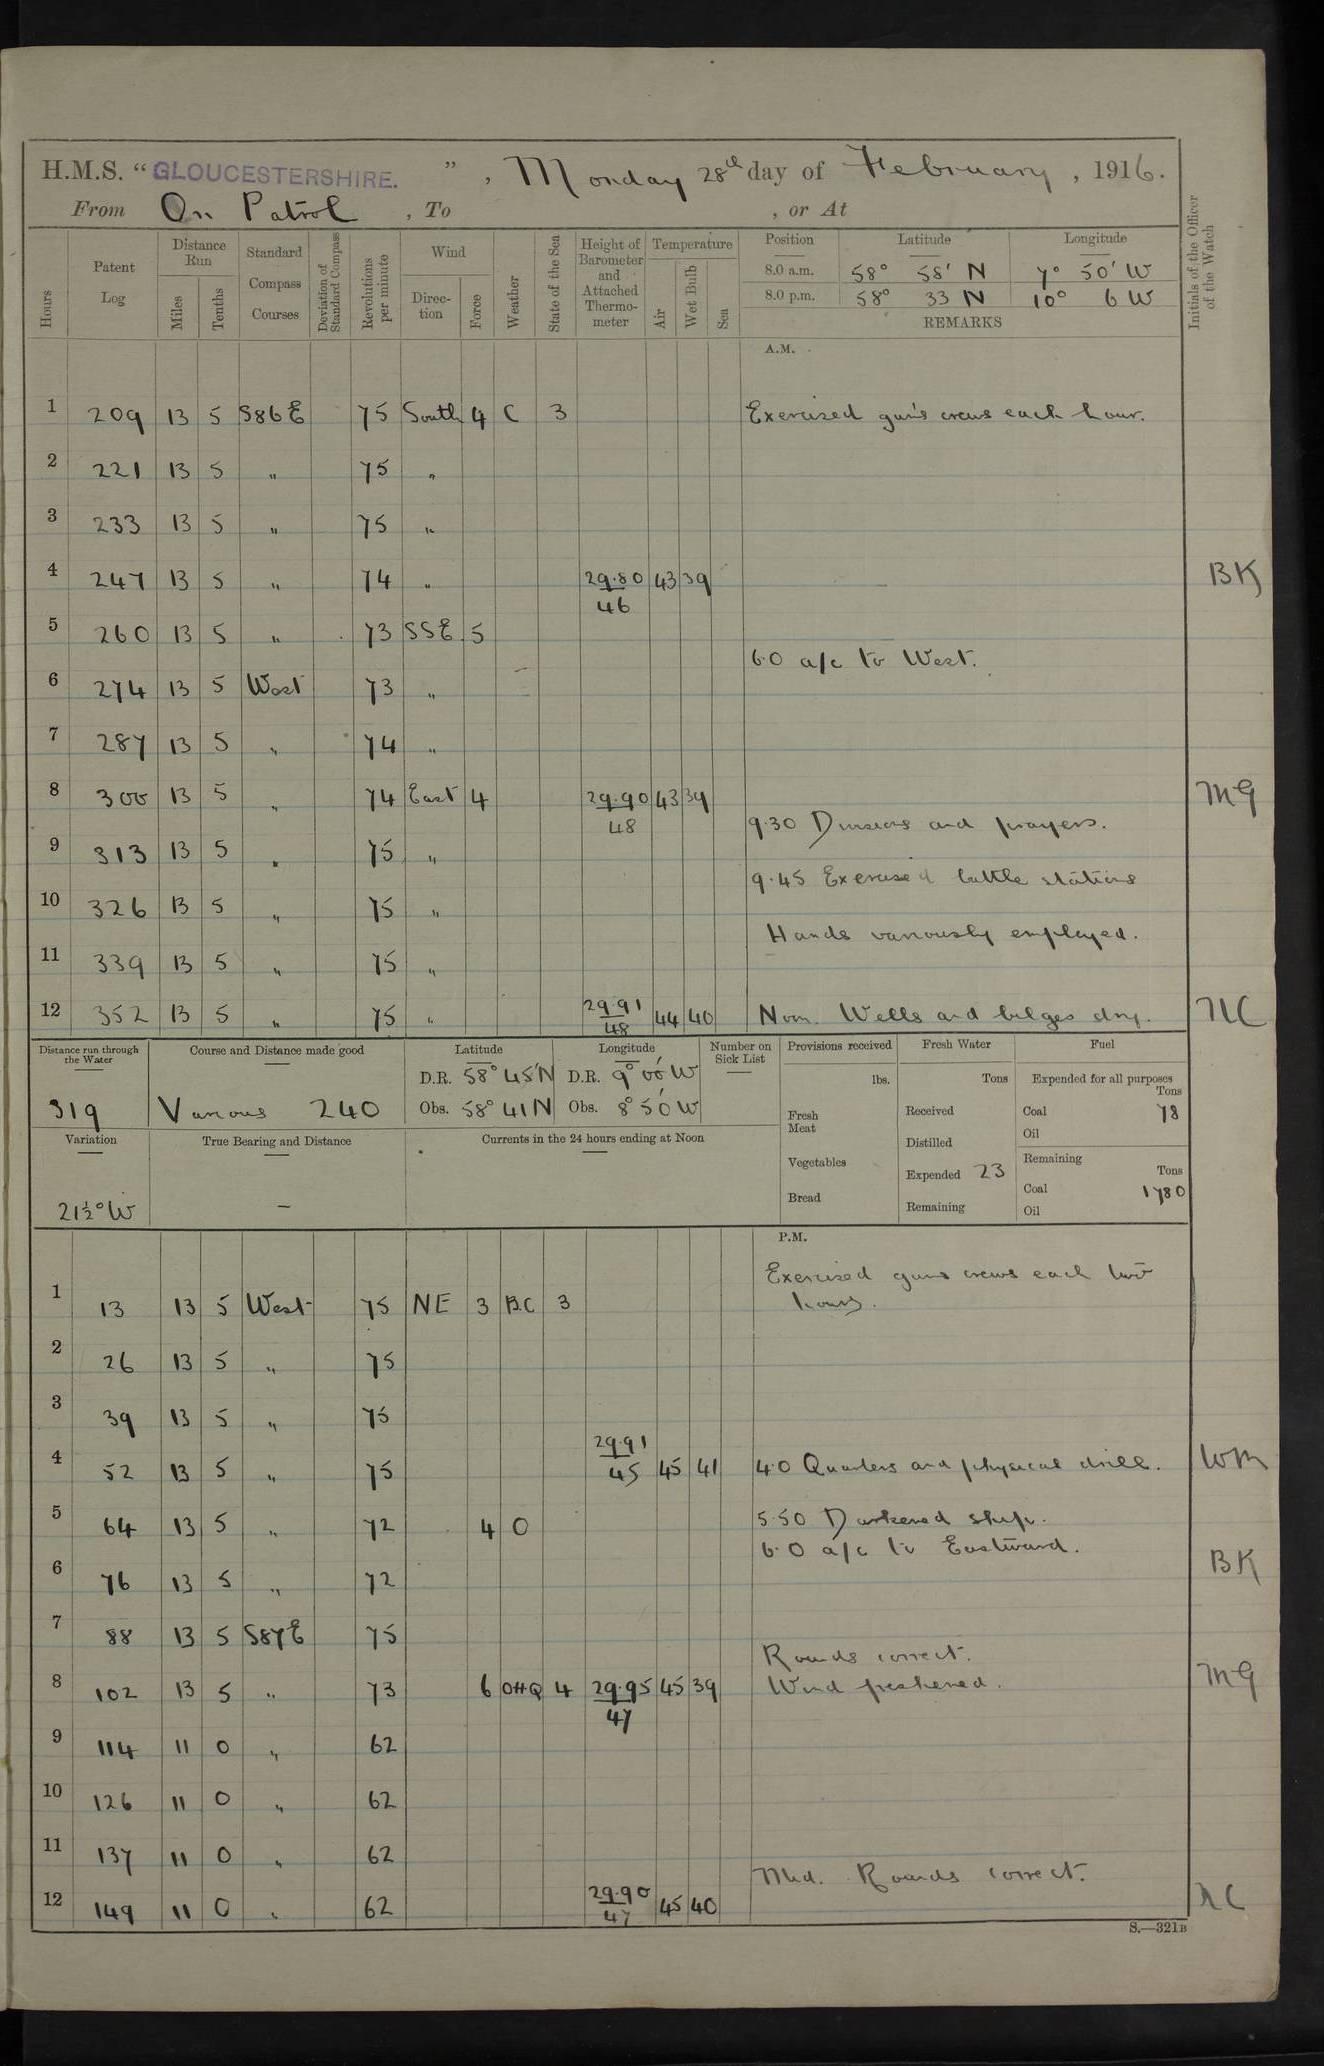 H.M.S. "GLOUCESTERSHIRE.", Monday 28th day of February, 1916.
From On Patrol, To , or At
Hours
Patent Log
Distance Run
Miles
Tenths
Standard Compass Courses
Deviation of Standard Compass
Revolutions per minute
Wind
Direction
Force
Weather
State of the Sea
Height of Barometer and Attached Thermometer
Temperature
Air
Wet Bulb
Sea
Position Latitude Longitude
8.0 a.m. 58° 58' N 7° 50' W
8.0 p.m. 58° 33 N 10° 6 W
REMARKS
Initials of the Officer of the Watch
A.M.
1 209 13 5 S86E 75 South 4 C 3 Exercised gun's crews each hour.
2 221 13 5 " 75 "
3 233 13 5 " 75 "
4 247 13 5 " 74 " 29.80 43 39 BK
46
5 260 13 5 " 73 SSE 5
6.0 a/c to West.
6 274 13 5 West 73 "
7 287 13 5 " 74 "
8 300 13 5 " 74 East 4 29.90 43 39 MG
48
9.30 Divisions and prayers.
9 313 13 5 " 75 "
9.45 Exercised battle stations
10 326 13 5 " 75 "
Hands variously employed.
11 339 13 5 " 75 "
12 352 13 5 " 75 " 29.91 44 40 Noon. Wells and bilges dry.
48
Distance run through the Water
319
Course and Distance made good
Various 240
Latitude
D.R. 58° 45'N
Obs. 58° 41 N
Longitude
D.R. 9° 00' W
Obs. 8° 50' W
Number on Sick List
Provisions received
lbs.
Fresh Meat
Vegetables
Bread
Fresh Water
Tons
Received
Distilled
Expended 23
Remaining
Fuel
Expended for all purposes
Tons
Coal 78
Oil
Remaining
Tons
Coal 1780
Oil
Variation
21½° W
True Bearing and Distance
—
Currents in the 24 hours ending at Noon
P.M.
Exercised guns crews each two
1 13 13 5 West 75 NE 3 B.C 3 hours.
2 26 13 5 " 75
3 39 13 5 " 75
29.91
4 52 13 5 " 75 45 45 41 4.0 Quarters and physical drill. WM
5 64 13 5 " 72 4 O 5.50 Darkened ship.
6.0 a/c to Eastward.
BK
6 76 13 5 " 72
7 88 13 5 S87E 75
Rounds correct.
8 102 13 5 " 73 6 4 29.95 45 39 Wind freshened. MG
47
9 114 11 0 " 62
10 126 11 0 " 62
11 137 11 0 " 62
Mid. Rounds correct.
12 149 11 0 " 62 29.90 45 40
47
S.—321B